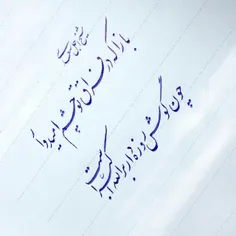 شیخ اجل سعدی
باز آ که در فراق تو چشم امیدوار
چون گوش روزه دار بر الله اکبر است